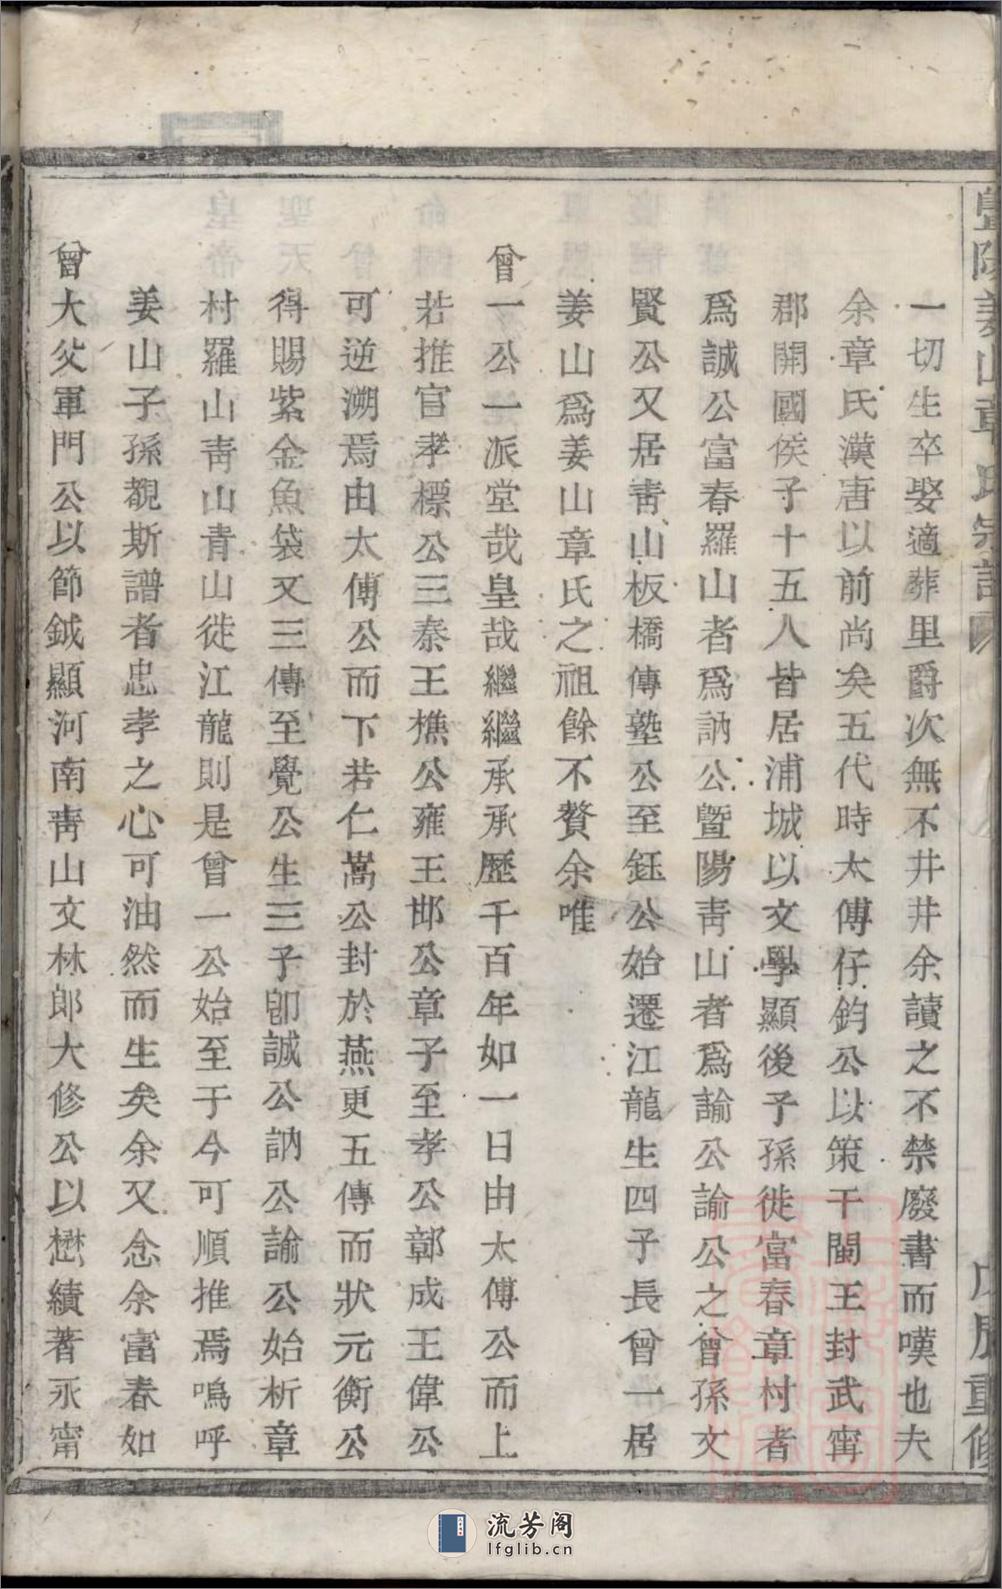 暨陽姜山章氏宗譜 戊辰重修
一切生卒娶適葬里爵次無不井井余讀之不禁廢書而嘆也夫
余章氏漢唐以前尚矣五代時太傅仔鈞公以策干閩王封武寧
郡開國侯子十五人皆居浦城以文學顯後子孫徙富春章村者
爲誠公富春羅山者爲訥公暨陽靑山者爲諭公諭公之曾孫文
賢公又居靑山板橋傳塾公至鈺公始遷江龍生四子長曾一居
姜山爲姜山章氏之祖餘不贅余唯
曾一公一派堂哉皇哉繼繼承承歷千百年如一日由太傅公而上
若推官孝標公三秦王樵公雍王邯公章子至孝公鄣成王偉公
可逆溯焉由太傅公而下若仁嵩公封於燕更五傳而狀元衡公
得賜紫金魚袋又三傳至覺公生三子卽誠公訥公諭公始析章
村羅山靑山靑山徙江龍則是曾一公始至于今可順推焉嗚呼
姜山子孫覩斯譜者忠孝之心可油然而生矣余又念余富春如
曾大父軍門公以節鉞顯河南靑山文林郎大修公以懋績著永甯
流芳阁
lfglib.cn